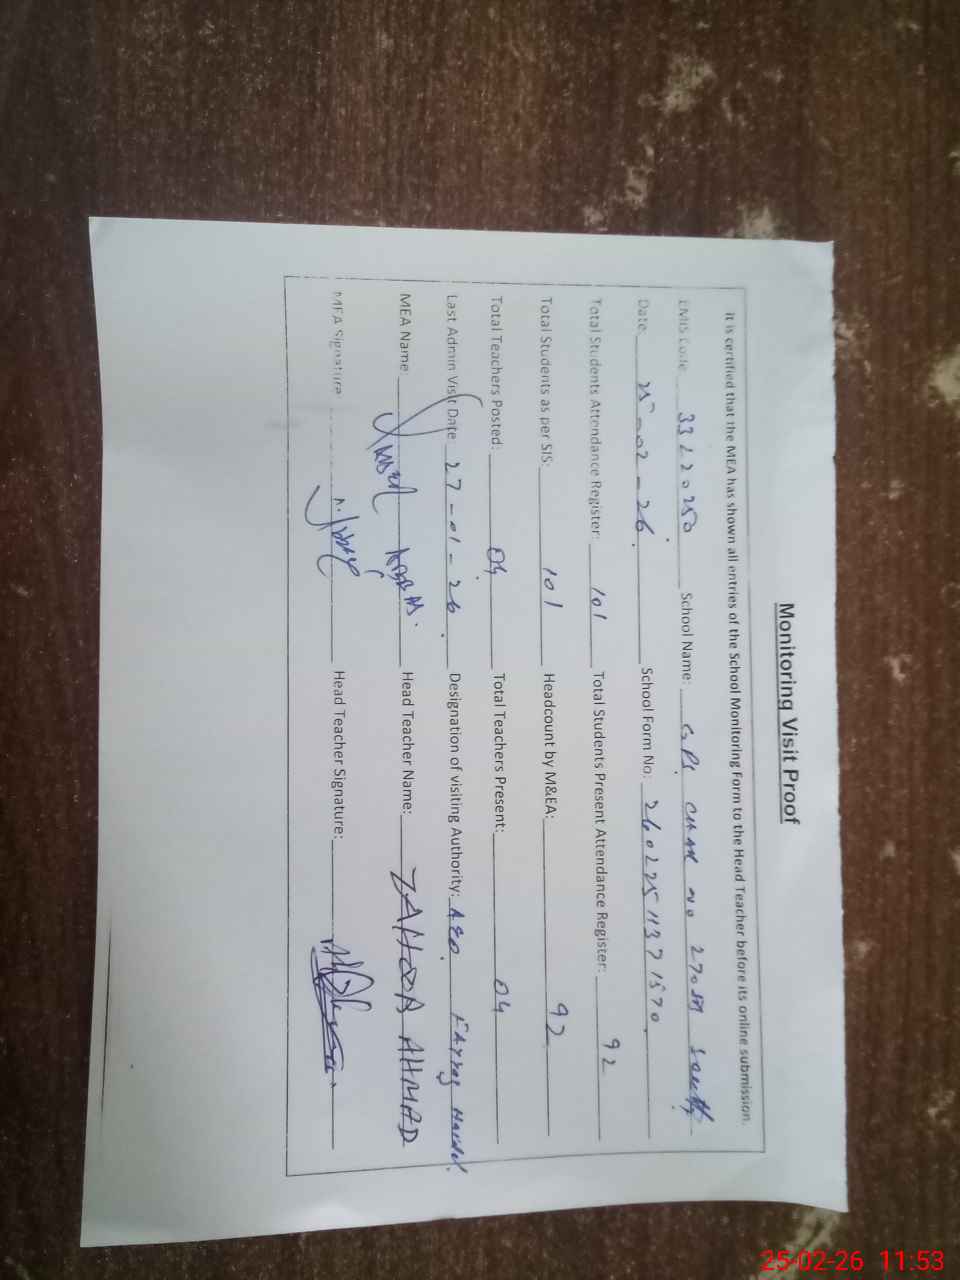 Monitoring Visit Proof
It is certified that the MEA has shown all entries of the School Monitoring Form to the Head Teacher before its online submission.
EMIS Code 33220250 School Name: GPS CHAK NO 270 South
Date: 25-02-26. School Form No: 26022511371570
Total Students Attendance Register: 101 Total Students Present Attendance Register: 92
Total Students as per SIS: 101 Headcount by M&EA: 92
Total Teachers Posted: 04 Total Teachers Present: 04
Last Admin Visit Date 27-01-26. Designation of visiting Authority: AEO.
MEA Name ABBAS. Head Teacher Name: ZAHOOR AHMAD
MEA Signature Head Teacher Signature:
25-02-26 11:53